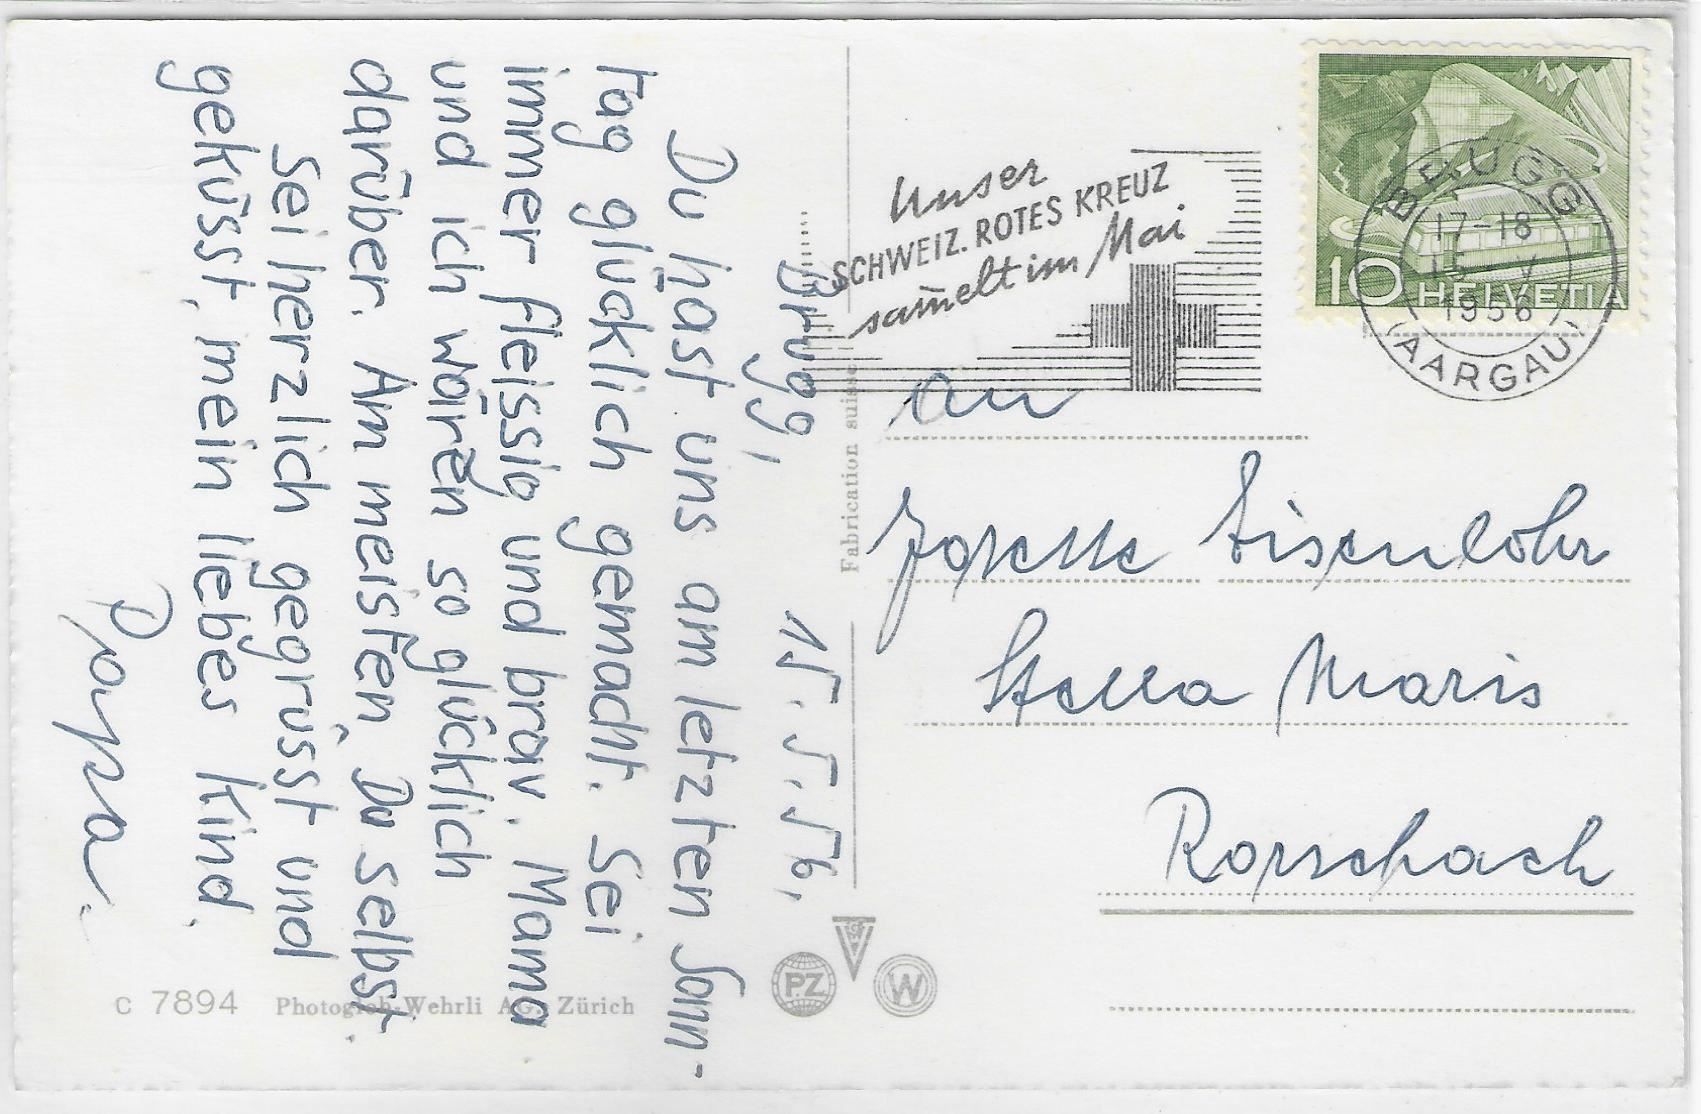 Brugg, 15.5.56,
Du hast uns am letzten Sonn-
tag glücklich gemacht. Sei
immer fleissig und brav. Mama
und ich wären so glücklich
darüber. Am meisten Du selbst.
Sei herzlich gegrüsst und
geküsst, mein liebes Kind.
Papa.
Unser
SCHWEIZ. ROTES KREUZ
sammelt im Mai
BRUGG
17-18
15. V
1956
(AARGAU)
10 HELVETIA
An
Josette Eisenlohr
Stella Maris
Rorschach
Fabrication suisse
C 7894 Photoglob-Wehrli AG., Zürich
PZ
W